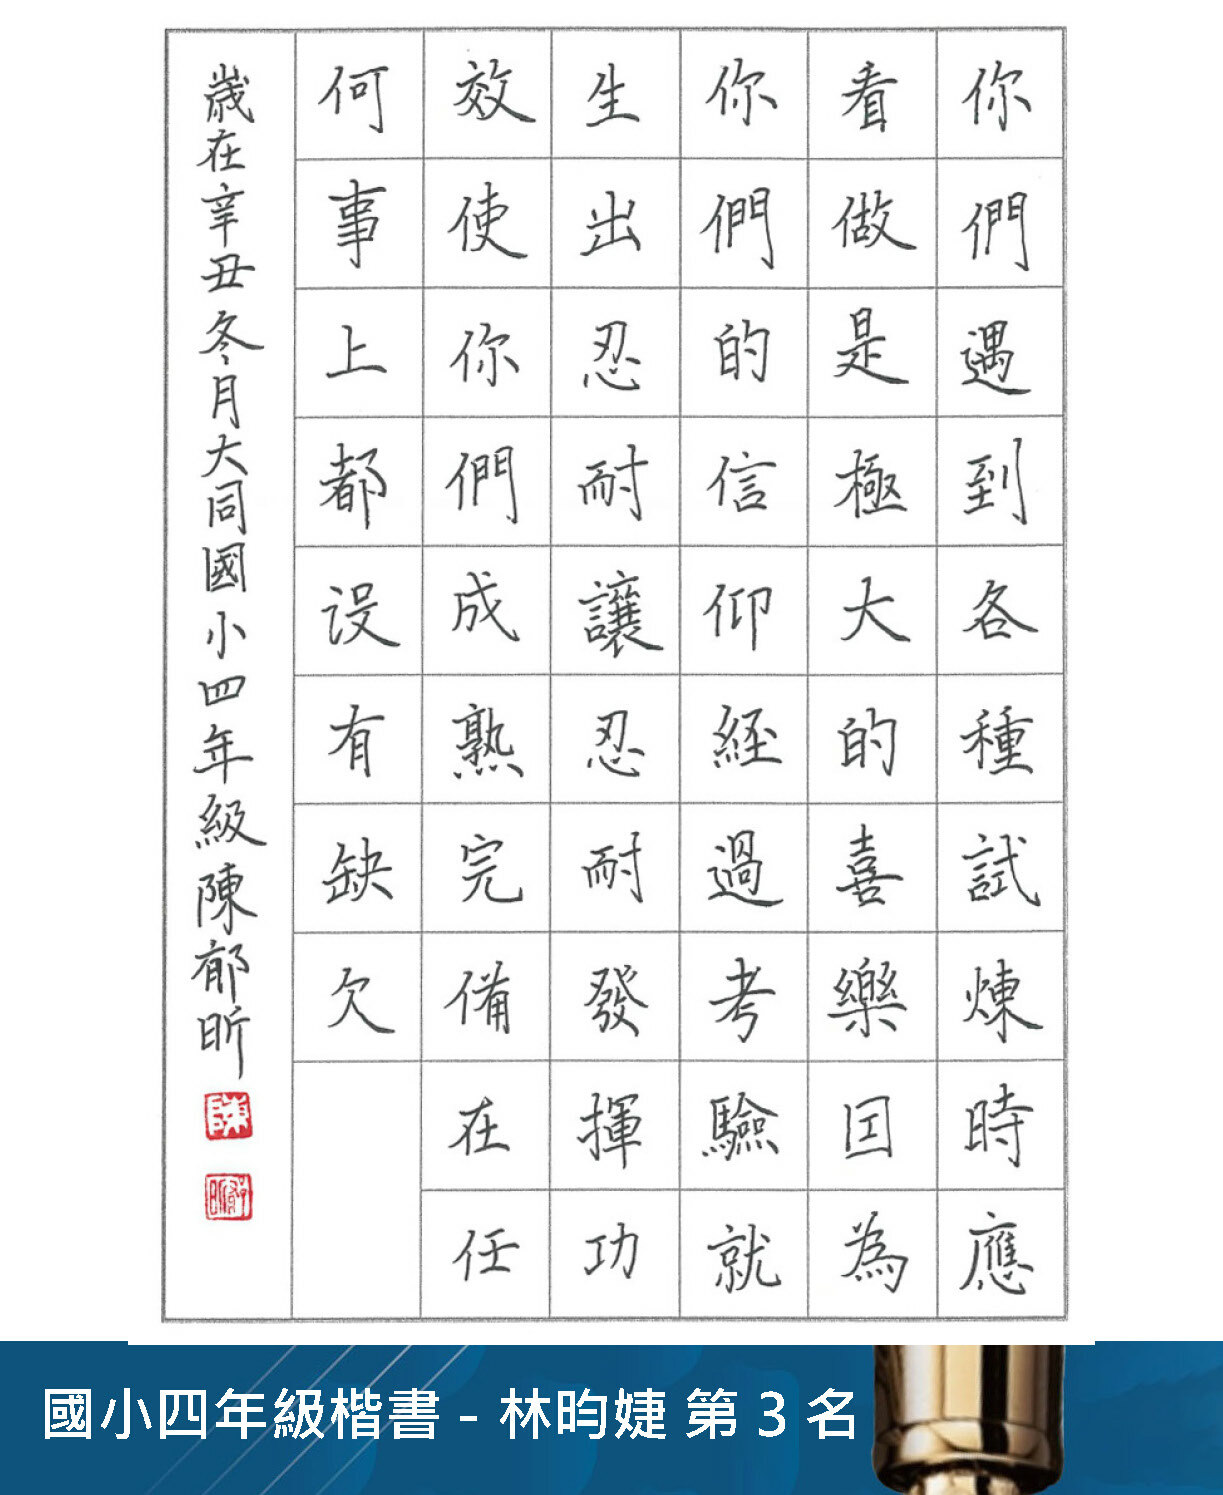 你們遇到各種試煉時應
看做是極大的喜樂因為
你們的信仰經過考驗就
生出忍耐讓忍耐發揮功
效使你們成熟完備在任
何事上都没有缺欠
歲在辛丑冬月大同國小四年級陳郁昕
陳
國小四年級楷書 - 林昀婕 第 3 名